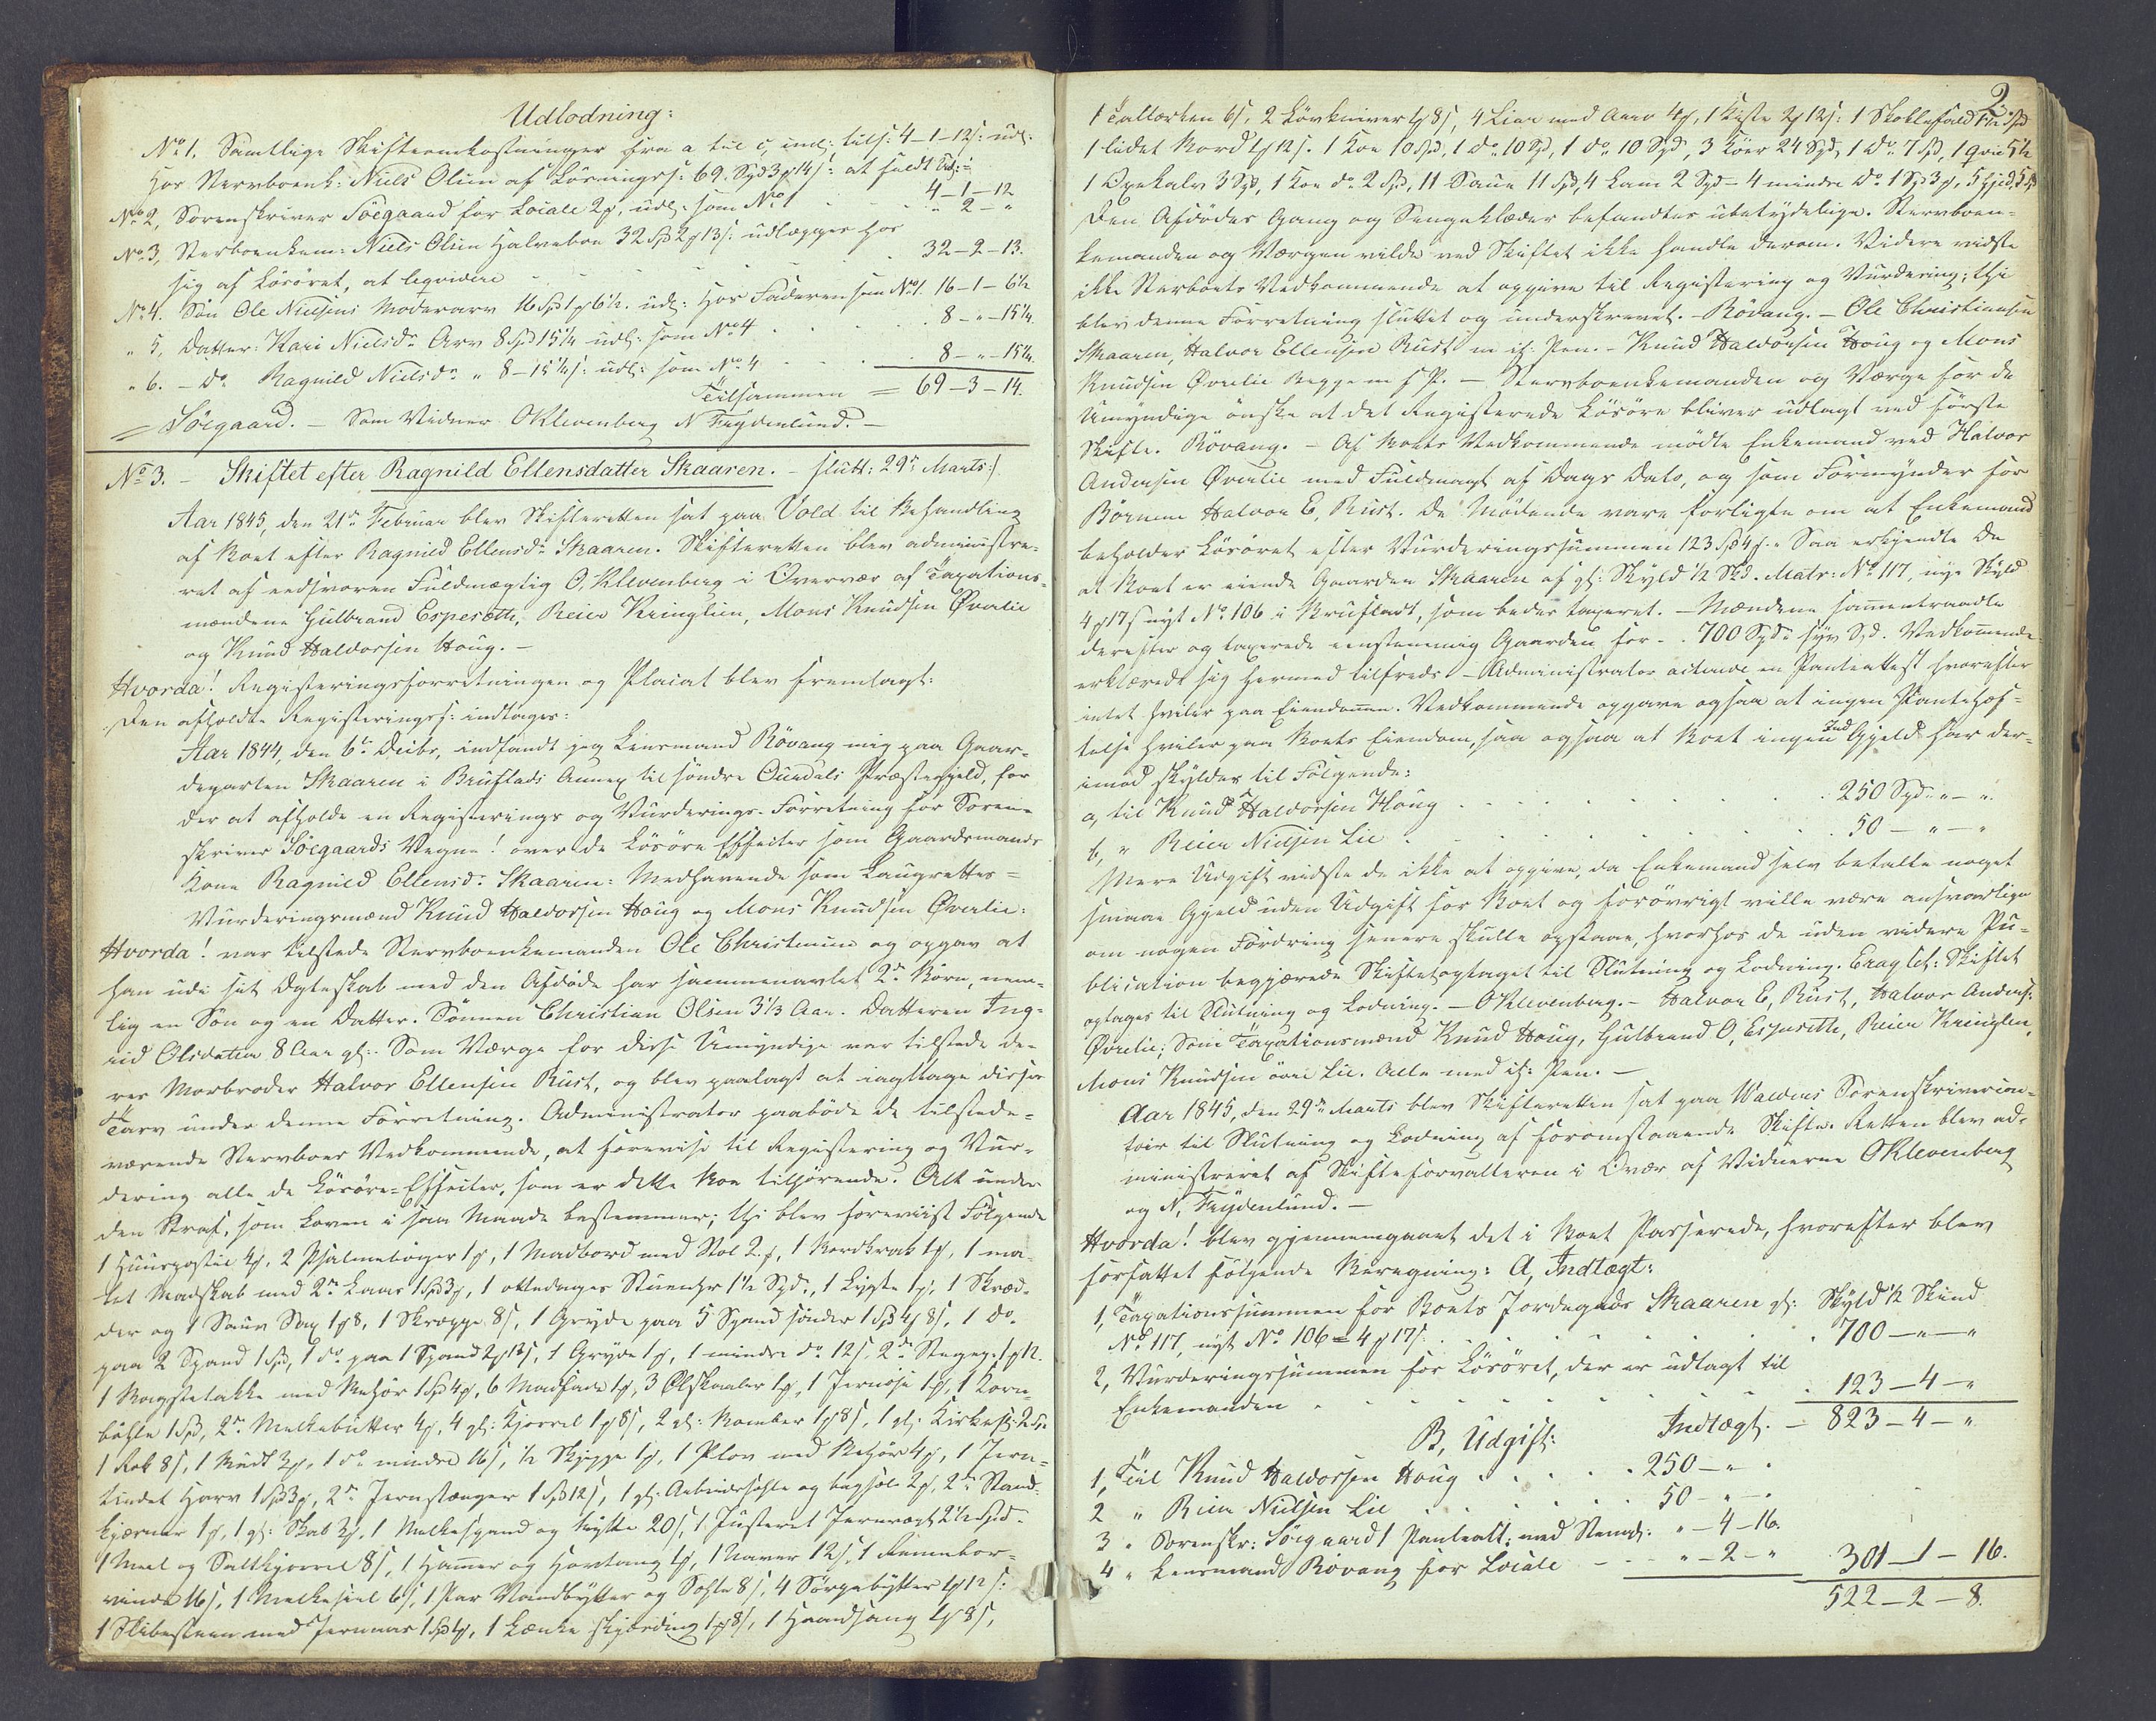 Udlodning:
No 1. Samtlige Skifteomkostninger fra a til c, incl: tils: 4-1-12 s: udl:
hos Stervboenk: Niels Olsen af Løsningss: 69 Spd 3 ₰ 14 s: at fuldt Bel:
4-1-12
No 2, Sorenskriver Söegaard for Locale 2 ₰, udl: som No 1 . . . " 2 - "
No 3, Sterboenkem: Niels Olsen Halveboe 32 Spd 2 ₰ 13 s: udlægges hos
sig af Løsøret, at leqvidere . . . . 32-2-13.
No 4. Søn Ole Nielsens Moderarv 16 Spd 1 ₰ 6½. udl: hos Faderen som No 1. 16-1-6½
" 5, Datter: Kari Nielsdr Arv 8 Spd 15¼ udl: som No 4 . . . 8-"-15¼.
" 6. - do Ragnild Nielsdr " 8-15¼ s: udl: som No 4 . . . 8-"-15¼.
Tilsammen = 69-3-14.
Söegaard. - Som Vidner OKlevenberg N Frydenlund. -
No 3. - Skiftet efter Ragnild Ellensdatter Skaaren. - slutt: 29de Marts:/
Aar 1845, den 21de Februar blev Skifteretten sat paa Vold til Behandling
af Boet efter Ragnild Ellensdr Skaaren. Skifteretten blev administre-
ret af eedsvoren Fuldmægtig O. Klevenberg i Overvær af Taxations-
mændene Gulbrand Espesætte, Reier Kringlien, Mons Knudsen Øvrelie
og Knud Haldorsen Houg. -
Hvorda! Registeringsforretningen og Placat blev fremlagt:
Den afholdte Registeringsf: indtages:
Aar 1844, den 6te Decbr, indfandt jeg Lensmand Rövang mig paa Gaar-
departen Skaaren i Bruflads Annex til söndre Ourdals Præstegjeld, for
der at afholde en Registerings og Vurderings-Forretning for Soren-
skriver Söegaards Vegne! over de Løsøre Effecter som Gaardmands
Kone Ragnild Ellensdr Skaaren: Medhavende som Laugrettes=
Vurderingsmænd Knud Haldorsen Houg og Mons Knudsen Øvrelie:
Hvorda! var tilstede Stervboenkemanden Ole Christensen og opgav at
han udi sit Ægteskab med den Afdöde har sammenavlet 2de Börn, nem-
lig en Søn og en Datter. Sönnen Christian Olsen 3⅓ Aar. Datteren Ing-
rid Olsdatter 8 Aar gl:. Som Værge for disse Umyndige var tilstede de-
res Morbroder Halvor Ellensen Rust, og blev paalagt at iagttage disses
Tarv under denne Forretning. Administrator paabøde de tilstede-
værende Stervboes Vedkommende, at forevise til Registering og Vur-
dering alle de Løsøre-Effecter, som er dette Boe tilhörende. Alt under
den Straf, som Loven i saa Maade bestemmer; thi blev foreviist Følgende
1 Huuspostil 4 ₰, 2 Psalmebøger 1 ₰, 1 Madbord med Stol 2 ₰, 1 Bordkrak 1 ₰, 1 ma-
let Madskab med 2de Laaes 1 Spd 3 ₰, 1 ottedages Stueuhr 1½ Spd., 1 Lygte 1 ₰, 1 Skræd-
der og 1 Sauw Sax 1 ₰ 8, 1 Skræppe 8 s, 1 Gryde paa 5 Spand sönder 1 Spd 4 ₰ 8 s, 1 do.
paa 2 Spand 1 Spd, 1 do paa 1 Spand 2 ₰ 12 s, 1 Gryde 1 ₰, 1 mindre do 12 s, 2de Stegep: 1 ₰ 12.
1 Bagstetakke med Behør 1 Spd 4 ₰, 6 Madfade 1 ₰, 3 Ølskaaler 1 ₰, 1 Jernøse 1 ₰, 1 Korn-
bølle 1 Spd, 2de Melkebutter 4 ₰, 4 gl: Kjørrel 1 ₰ 8 s, 2 gl: Bomber 1 ₰ 8 s, 1 gl: Kirkesl: 2 Sp.
1 Reb 8 s, 1 Mudt 2 ₰, 1 do mindre 16 s, ½ Skjeppe 1 ₰, 1 Plov med Behør 4 ₰, 1 Jern-
tindet Harv 1 Spd 3 ₰, 2de Jernstænger 1 Spd 12 s, 1 gl: Arbeidssehle og bogsele 2 ₰, 2de Stand-
kjærner 1 ₰, 1 gl: Skab 3 ₰, 1 Melkespand og bytte 20 s, 1 Justeret Jernvægt 2½ Spd.
1 Meel og Saltkjørrel 8 s, 1 Hamer og Hovtang 1 ₰, 1 Naver 12 s, 1 Rennebor-
vinde 16 s, 1 Melkesiel 6 s, 1 Par Vandbytter og Sehle 8 s, 4 Sørpebytter 1 ₰ 12 s:
1 Slibesteen med Jernnav 1 Spd 1 ₰, 1 Lænke skjærding 1 ₰ 8 s, 1 Haandsaug 1 ₰ 8 s,
2.
1 Tallerken 6 s, 2 Løvkniver 1 ₰ 8 s, 4 Liar med Aarv 4 ₰, 1 Kiste 2 ₰ 12 s: 1 Skobblefæld 1½ Spd
1 lidet Bord 1 ₰ 12 s. 1 Koe 10 Spd, 1 do 10 Spd, 1 do 10 Spd, 3 Köer 24 Spd, 1 do 7 Spd, 1 Qvie 5½
1 Oxekalv 3 Spd, 1 Koe do 2 Spd, 11 Saue 11 Spd, 4 Lam 2 Spd - 4 mindre do 1 Spd 3 ₰, 5 Gjed. 5 Spd
Den Afdødes Gang og Sengeklæder befandtes ubetydelige. Stervboen-
kemanden og Værgen vilde ved Skiftet ikke handle derom. Videre vidste
ikke Sterboets Vedkommende at opgive til Registering og Vurdering; thi
blev denne Forretning sluttet og underskrevet. - Rövang. - Ole Christensen
Skaaren, Halvor Ellensen Rust m ih: Pen. - Knud Haldorsen Houg og Mons
Knudsen Øvrelie Begge m f P. - Stervboenkemanden og Værge for de
Umyndige önske at det Registerede Løsøre bliver udlagt ved første
Skifte. Rövang. - Af Boets Vedkommende mødte Enkemand ved Halvor
Andersen Øvrelie med Fuldmagt af Dags Dato, og som Formynder for
Börnene Halvor E, Rust. De Mødende vare forligte om at Enkemand
beholder Løsøret efter Vurderingssummen 123 Spd 4 ₰. - Saa erkjendte De
at Boet er eiende Gaarden Skaaren af gl: Skyld ½ Skd. Matr: No 117, nye Skyld
4 ₰ 17 s nyt No 106 i Bruflad, som bedes taxeret. - Mændene sammentraadte
derefter og taxerede eenstemmig Gaarden for - . 700 Spd: syv Spd. Vedkommende
erklærede sig hermed tilfreds - Administrator acterede en Panteattest hvorefter
intet hviler paa Eiendommen. Vedkommende opgave ogsaa at ingen Pantehef-
telse hviler paa Boets Eiendom, saa ogsaa at Boet ingen Ind Gjeld har der-
imod skyldes til Følgende:
a, til Knud Haldorsen Houg . . . . . 250 Spd: " - ".
b, " Reier Nielsen Lie . . . . . . 50 - " - "
Mere Udgift vidste de ikke at opgive, da Enkemand selv betalte noget
smaae Gjeld uden Udgift for Boet og forøvrigt ville være ansvarlige
om nogen Fordring senere skulle opstaae, hvorhos de uden videre Pu-
blication begjærede Skiftet optaget til Slutning og Lodning. Eragtet: Skiftet
optages til Slutning og Lodning. - OKlevenberg. - Halvor E, Rust, Halvor Anders:
Øvrelie; Som Taxationsmænd Knud Houg, Gulbrand O, Espesette, Reier Kringlen,
Mons Knudsen övre Lie. Alle med ih: Pen. -
Aar 1845, den 29de Marts blev Skifteretten sat paa Waldens Sorenskrivercon-
toir til Slutning og Lodning af foromstaaende Skifte. Retten blev ad-
ministreret af Skifteforvalteren i Ovær af Vidnerne OKlevenberg
og N, Frydenlund. -
Hvorda! blev gjennemgaaet det i Boet Passerede, hvorefter blev
forfattet følgende Beregning: A, Indtægt:
1, Taxationssummen for Boets Jordegods Skaaren gl: Skyld ½ Skind
No 117, nyt No 106 = 4 ₰ 17 s: . . . . . 700 - " - "
2, Vurderingssummen for Løsøret, der er udlagt til
Enkemanden . . . . . . . 123 - 4 - "
Indtægt. - 823 - 4 - "
B, Udgift:
1, Til Knud Haldorsen Houg . . . . . 250 - " .
2 " Reier Nielsen Lie . . . . . 50 - " - .
3 " Sorenskr: Söegaard 1 Panteatt: med Stempl: " - 4 - 16.
4 " Lensmand Rövang for Locale - - - " - 2 - " 301 - 1 - 16.
522 - 2 - 8.